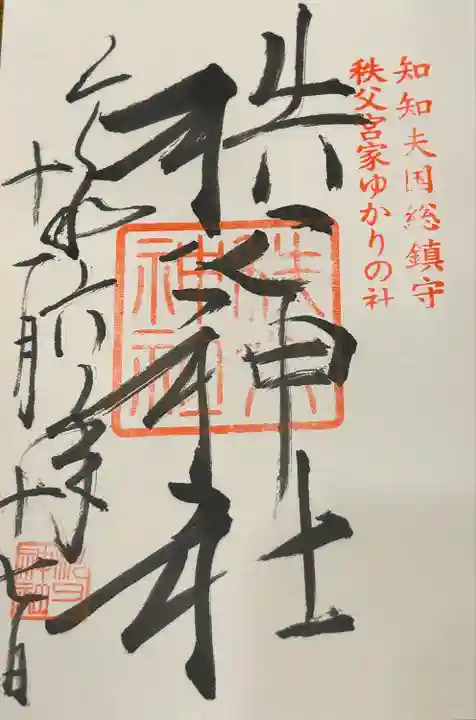 知知夫国総鎮守
秩父宮家ゆかりの社
秩父神社
秩父神社
令和六年
十一月十七日